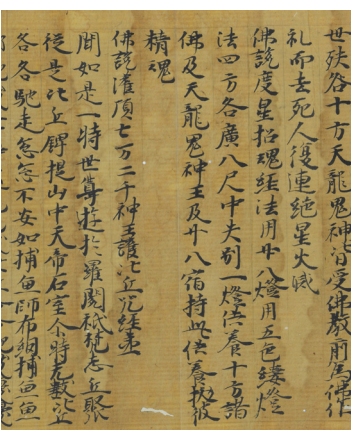 世殃咎十方天龍鬼神皆受佛教前為佛作
礼而去死人復連絕星火滅
佛說度星招魂經法用廿八燈用五色縷燈
法四方各廣八尺中央別一燈供養十方諸
佛及天龍鬼神王及廿八宿持此供養拔彼
精魂
佛說灌頂七万二千神王護比丘咒經壹
聞如是一時世尊遊於羅閱祇梵志丘聚
從是比丘鞞提山中天帝石室尒時无數比丘
各各馳走怱怱不安如捕魚師布網捕魚魚